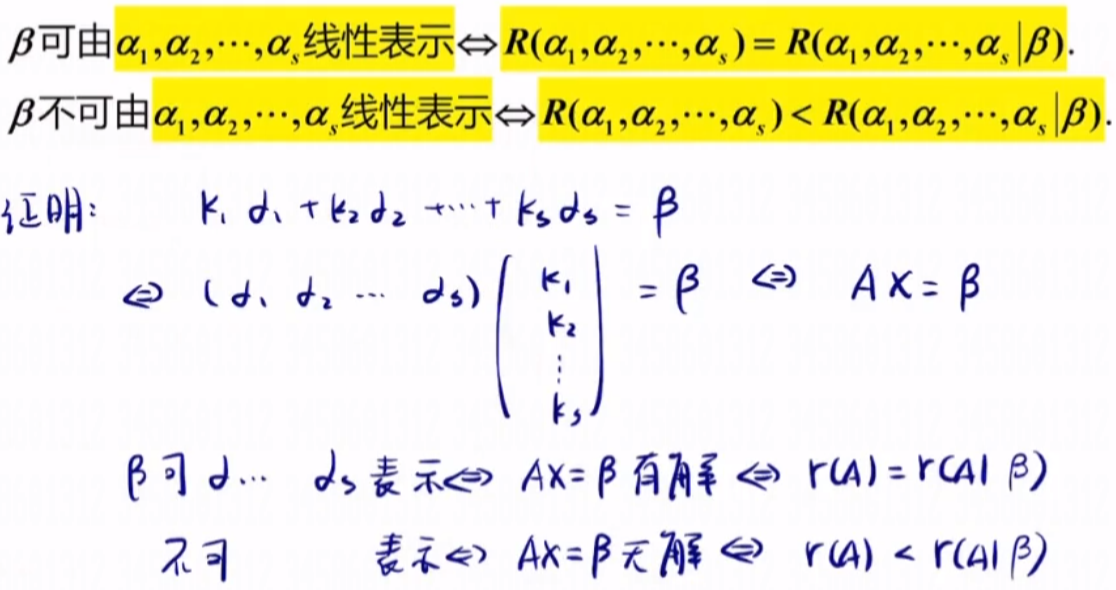 β可由α₁,α₂,⋯,αₛ线性表示⇔R(α₁,α₂,⋯,αₛ)=R(α₁,α₂,⋯,αₛ|β).
β不可由α₁,α₂,⋯,αₛ线性表示⇔R(α₁,α₂,⋯,αₛ)<R(α₁,α₂,⋯,αₛ|β).
证明: k₁α₁+k₂α₂+⋯+kₛαₛ=β
⇔ (α₁ α₂ ⋯ αₛ) (k₁ k₂ ⋮ kₛ) =β ⇔ AX=β
β可α⋯ αₛ表示⇔ AX=β有解⇔ r(A)=r(A|β)
不可 表示⇔ AX=β无解⇔ r(A)<r(A|β)